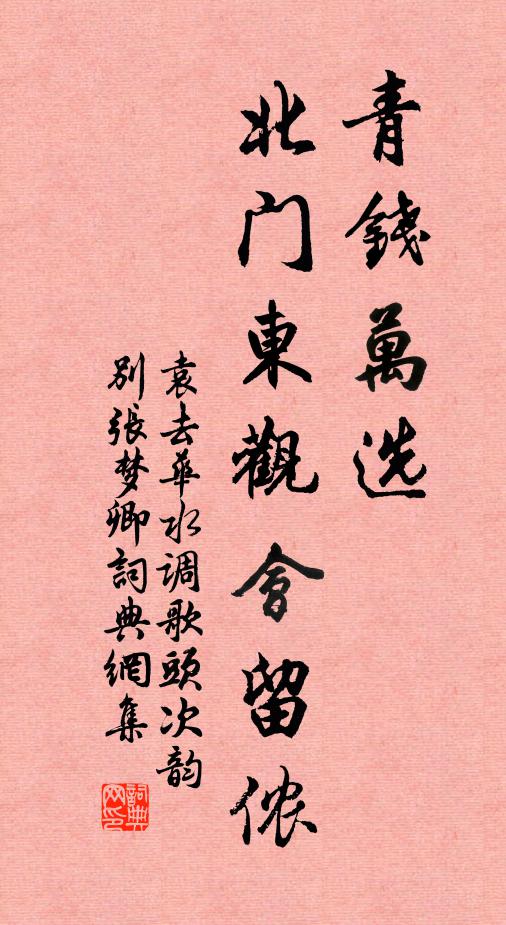 青錢萬选
北门東觀會留侬
袁去華水调歌頭次韵
别張梦卿詞典網集
詞典
网印